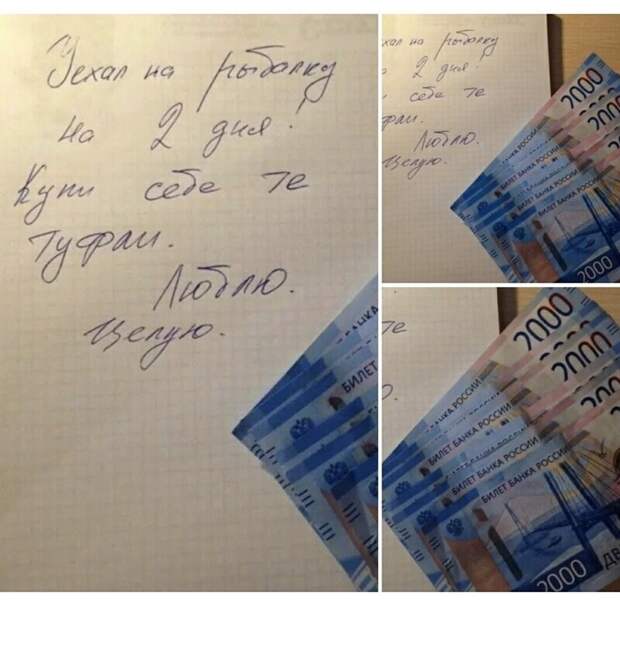 Уехал на рыбалку
на 2 дня!
Купи себе те
туфли.
Люблю.
Целую.
БАНКА
БИЛЕТ БАНКА
ехал на рыбалку
2 дня!
себе те
Люблю.
Целую.
2000
2000
БИЛЕТ БАНКА РОССИИ
2000
те
2000
2000
2000
БАНКА РОССИИ
БИЛЕТ БАНКА РОССИИ
БИЛЕТ БАНКА РОССИИ
БИЛЕТ БАНКА РОССИИ
2000